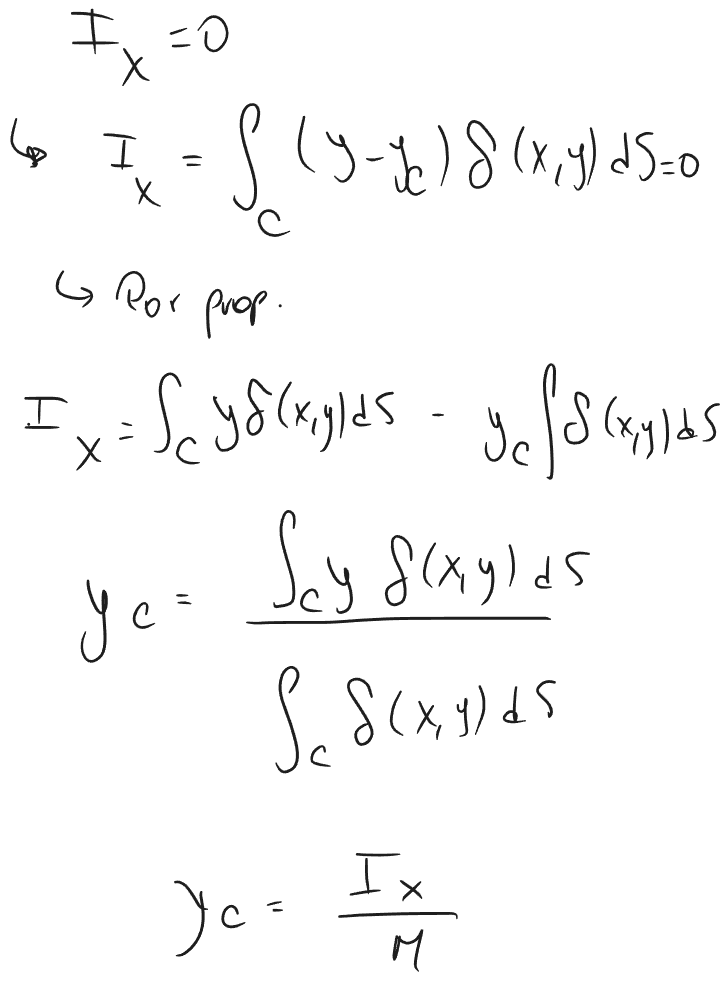 I_x = 0
↳ I_x = ∫_C (y - y_c) δ(x,y) dS = 0
↳ Por prop.
I_x = ∫_C y δ(x,y) dS - y_c ∫ δ(x,y) dS
y_c = ∫_C y δ(x,y) dS / ∫_C δ(x,y) dS
y_c = I_x / M